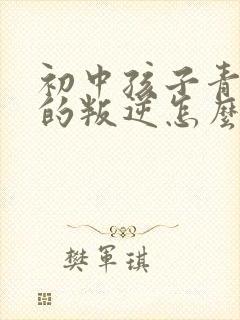 初中孩子青
的叛逆怎麼
樊軍琪